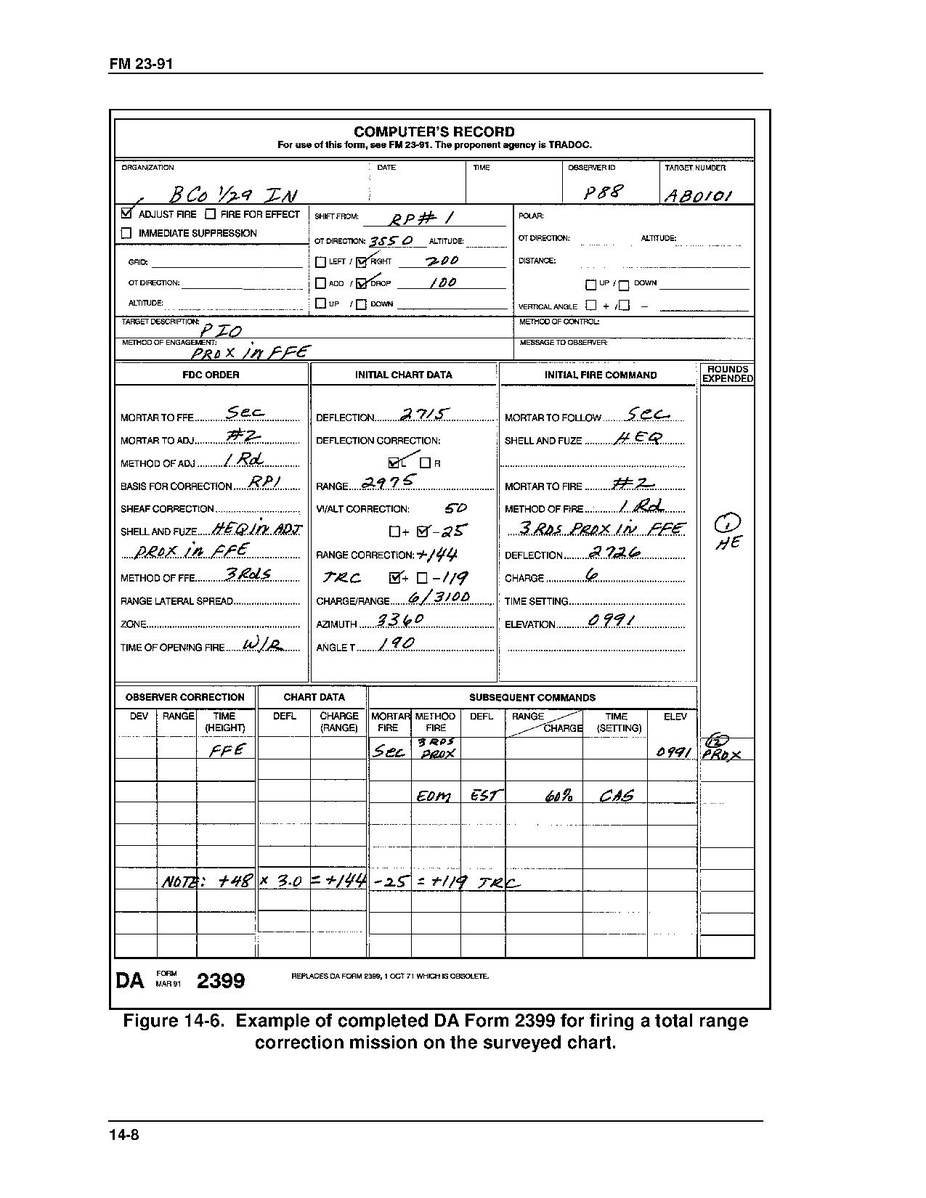 FM 23-91
COMPUTER'S RECORD
For use of this form, see FM 23-91. The proponent agency is TRADOC.
ORGANIZATION DATE TIME OBSERVER ID TARGET NUMBER
B Co 1/29 IN P88 AB0101
ADJUST FIRE FIRE FOR EFFECT SHIFT FROM: RP# 1 POLAR:
IMMEDIATE SUPPRESSION OT DIRECTION: 3850 ALTITUDE: OT DIRECTION: ALTITUDE:
GRID: LEFT / RIGHT 200 DISTANCE:
OT DIRECTION: ADD / DROP 100 UP / DOWN
ALTITUDE: UP / DOWN VERTICAL ANGLE + / −
TARGET DESCRIPTION: PIO METHOD OF CONTROL:
METHOD OF ENGAGEMENT: PROX in FFE MESSAGE TO OBSERVER:
FDC ORDER INITIAL CHART DATA INITIAL FIRE COMMAND ROUNDS EXPENDED
MORTAR TO FFE Sec DEFLECTION 2715 MORTAR TO FOLLOW SEC
MORTAR TO ADJ #2 DEFLECTION CORRECTION: SHELL AND FUZE HEQ
METHOD OF ADJ 1 Rd L R
BASIS FOR CORRECTION RP1 RANGE 2975 MORTAR TO FIRE #2
SHEAF CORRECTION VI/ALT CORRECTION: 50 METHOD OF FIRE 1 Rd
SHELL AND FUZE HEQ in ADJ + -25 3 RDS PROX IN FFE 1 HE
PROX in FFE RANGE CORRECTION: +144 DEFLECTION 2726
METHOD OF FFE 3 Rds TRC + - 119 CHARGE 6
RANGE LATERAL SPREAD CHARGE/RANGE 6/3100 TIME SETTING
ZONE AZIMUTH 3360 ELEVATION 0991
TIME OF OPENING FIRE W/R ANGLE T 190
OBSERVER CORRECTION CHART DATA SUBSEQUENT COMMANDS
DEV RANGE TIME (HEIGHT) DEFL CHARGE (RANGE) MORTAR FIRE METHOD FIRE DEFL RANGE CHARGE TIME (SETTING) ELEV
FFE Sec 3 RDS PROX 0991 12 PROX
EOM EST 60% CAS
NOTE: +48 x 3.0 = +144 -25 = +119 TRC
DA FORM MAR 91 2399 REPLACES DA FORM 2399, 1 OCT 71 WHICH IS OBSOLETE.
Figure 14-6. Example of completed DA Form 2399 for firing a total range
correction mission on the surveyed chart.
14-8